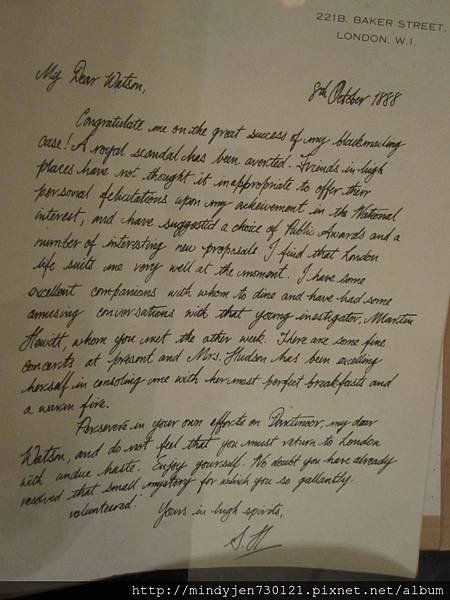 221B, BAKER STREET,
LONDON, W.1.
My Dear Watson,
8th October 1888
Congratulate me on the great success of my blackmailing
case! A royal scandal has been averted. Friends in high
places have not thought it inappropriate to offer their
personal felicitations upon my achievement in the National
interest, and have suggested a choice of Public Awards and a
number of interesting new proposals. I find that London
life suits me very well at the moment. I have some
excellent companions with whom to dine and have had some
amusing conversations with that young investigator, Martin
Hewitt, whom you met the other week. There are some fine
concerts at present and Mrs. Hudson has been excelling
herself in consoling me with her most perfect breakfasts and
a warm fire.
Persevere in your own efforts on Dartmoor, my dear
Watson, and do not feel that you must return to London
with undue haste. Enjoy yourself. No doubt you have already
resolved that small mystery for which you so gallantly
volunteered.
Yours in high spirits,
S.H.
http://mindyjen730121.pixnet.net/album